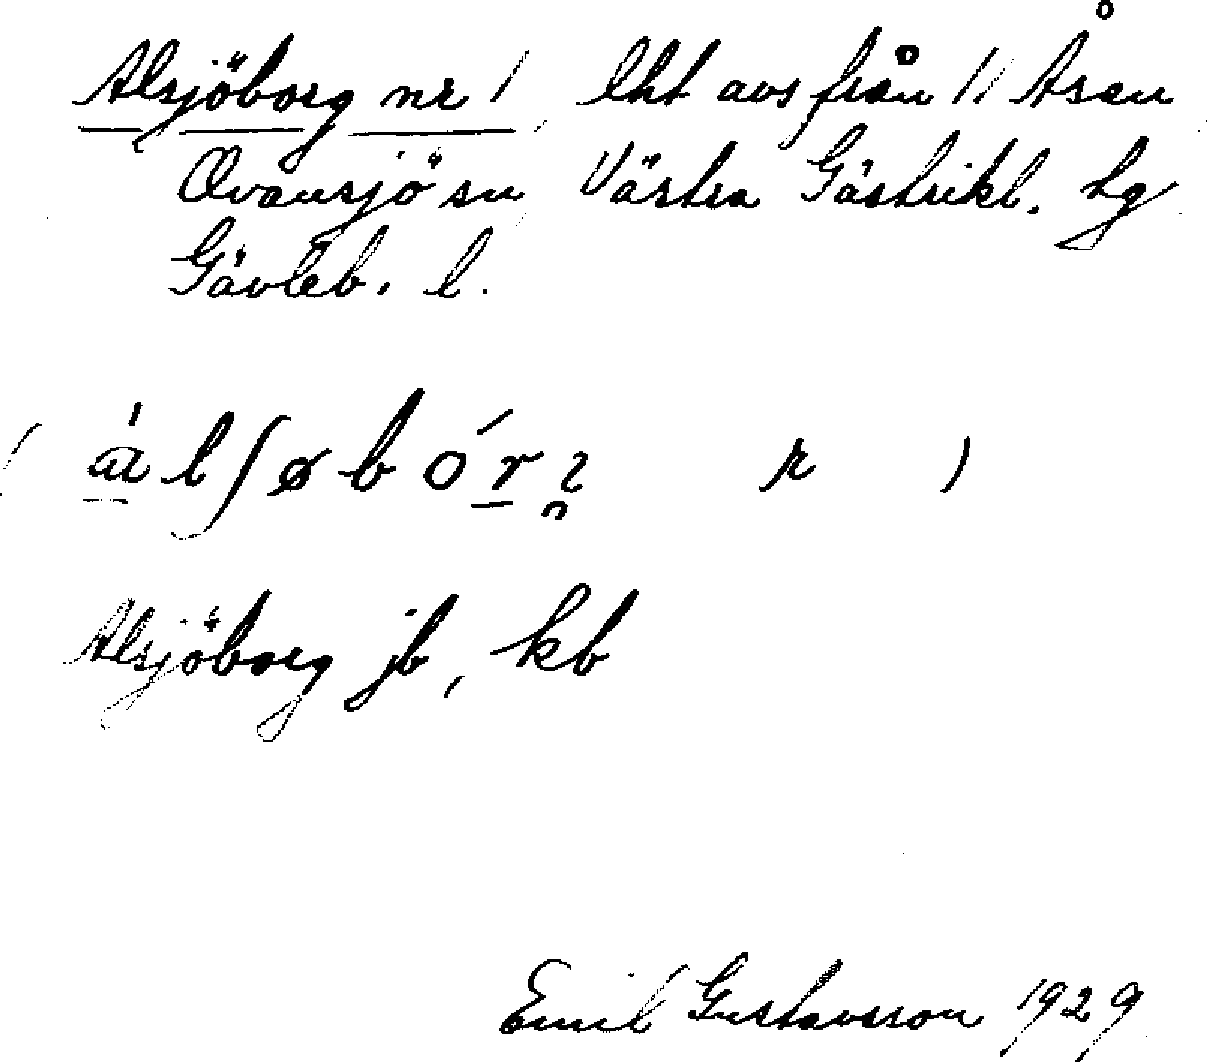 Alsjöborg nr 1 lht avs från 1/1 Åsen
Ovansjö sn Västra Gästrikl. tg
Gävleb. l.
Alsjöborg jb, kb
Emil Gustavsson 1929